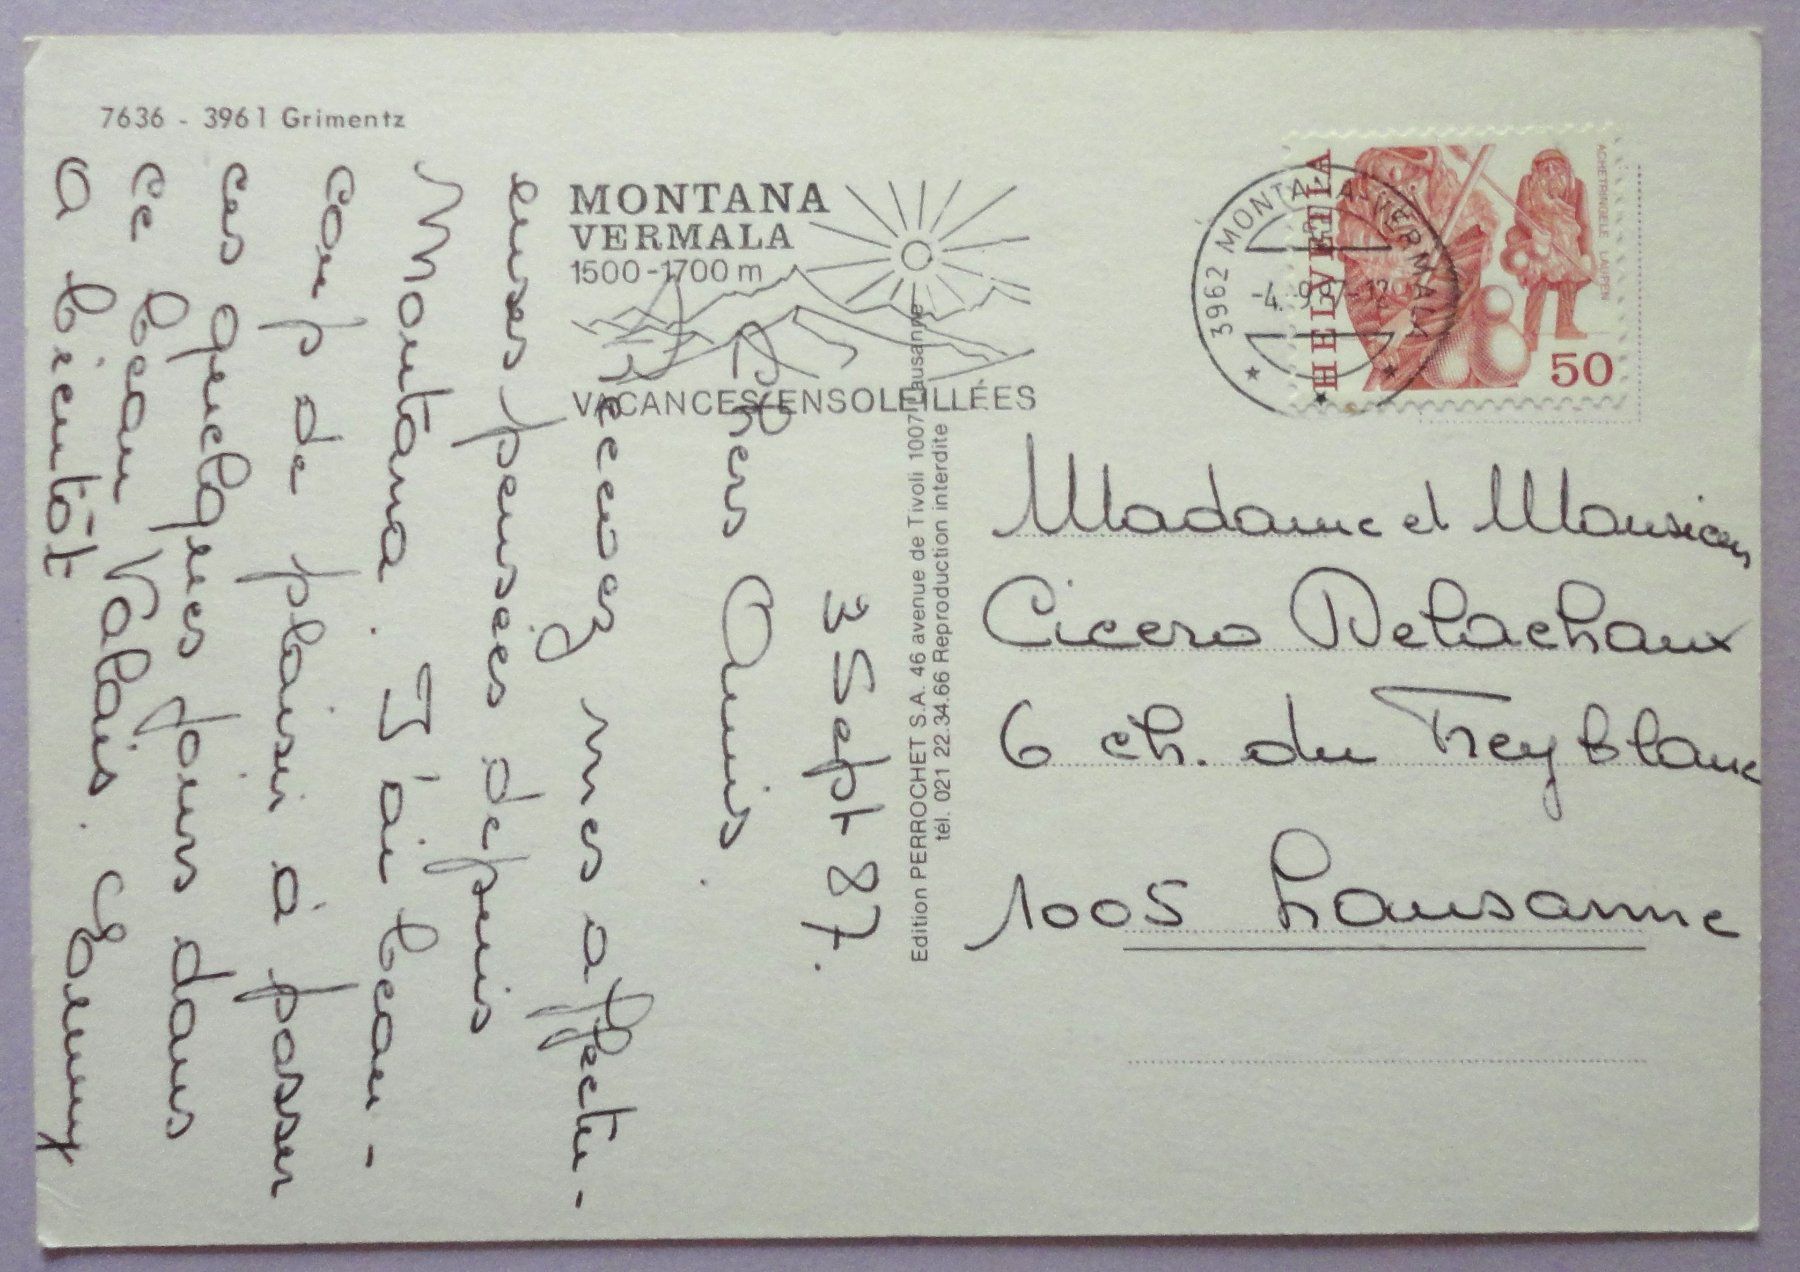 7636 - 3961 Grimentz
MONTANA
VERMALA
1500-1700 m
VACANCES ENSOLEILLÉES
3962 MONTANA-VERMALA
-4.-9.87-12
HELVETIA
ACHETRINGELE LAUPEN
50
3 Sept 87.
Chers Amis
Recevez mes affectu-
euses pensées depuis
Montana. J'ai beau-
coup de plaisir à passer
ces quelques jours dans
ce beau Valais.
A bientôt
Edition PERROCHET S.A. 46 avenue de Tivoli 1007 Lausanne
tél. 021 22.34.66 Reproduction interdite
Madame et Monsieur
Cicero Delachaux
6 ch. du Treyblanc
1005 Lausanne